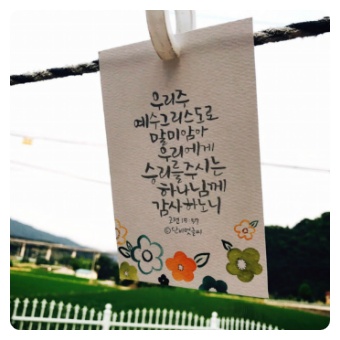 우리주
예수그리스도로
말미암아
우리에게
승리를주시는
하나님께
감사하노니
고전 15 : 57